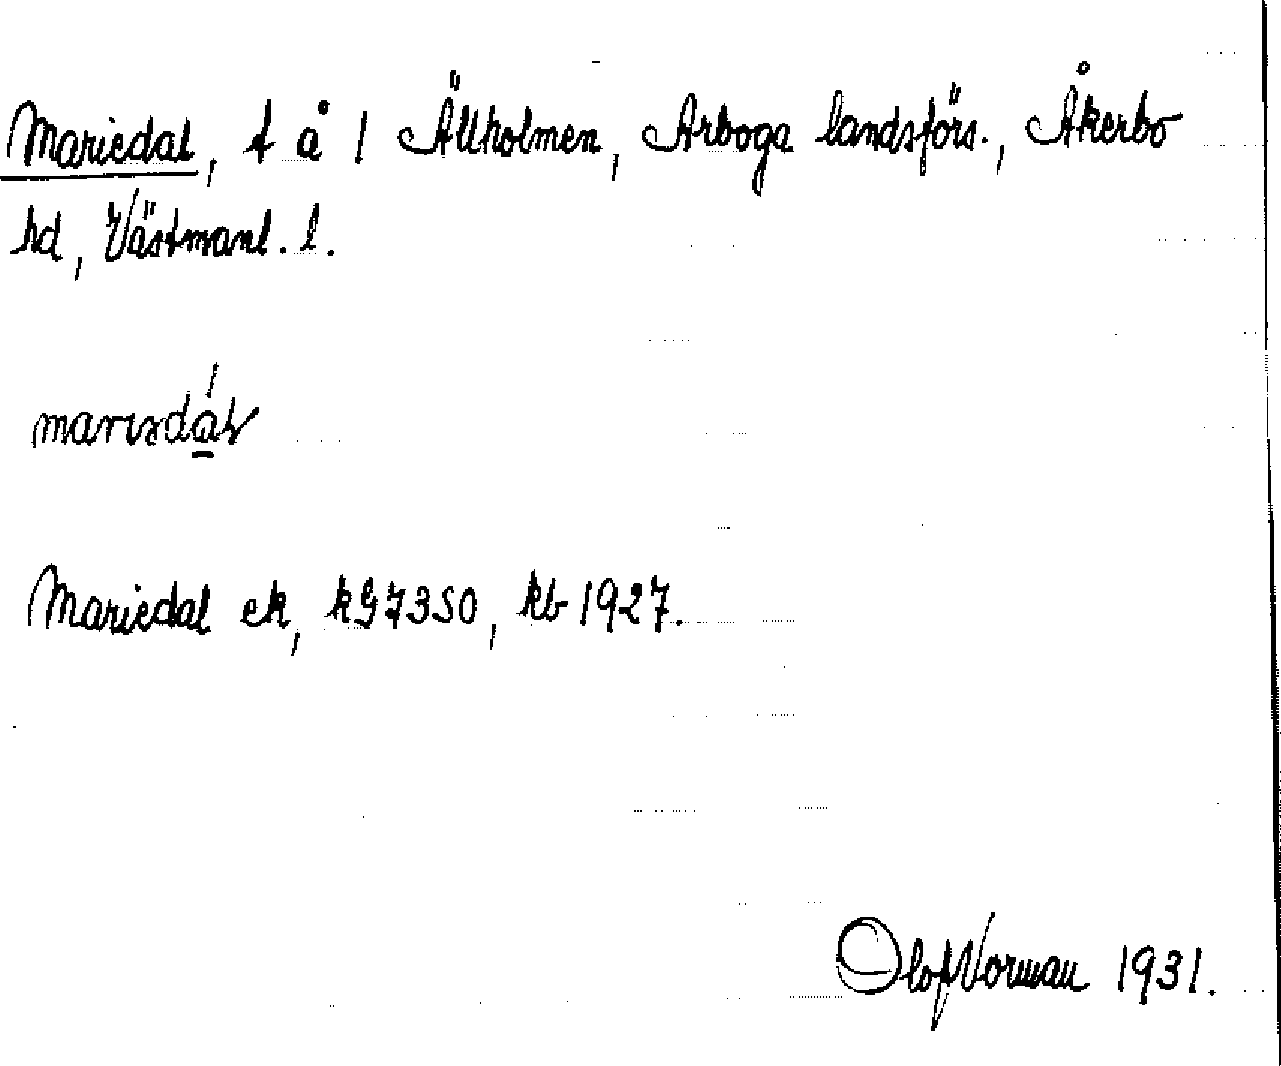 Mariedal, t å 1 Ällholmen, Arboga landsförs., Åkerbo
hd, Västmanl. l.
marɪsdál
Mariedal ek, kG7350, kb 1927.
Olof Norman 1931.